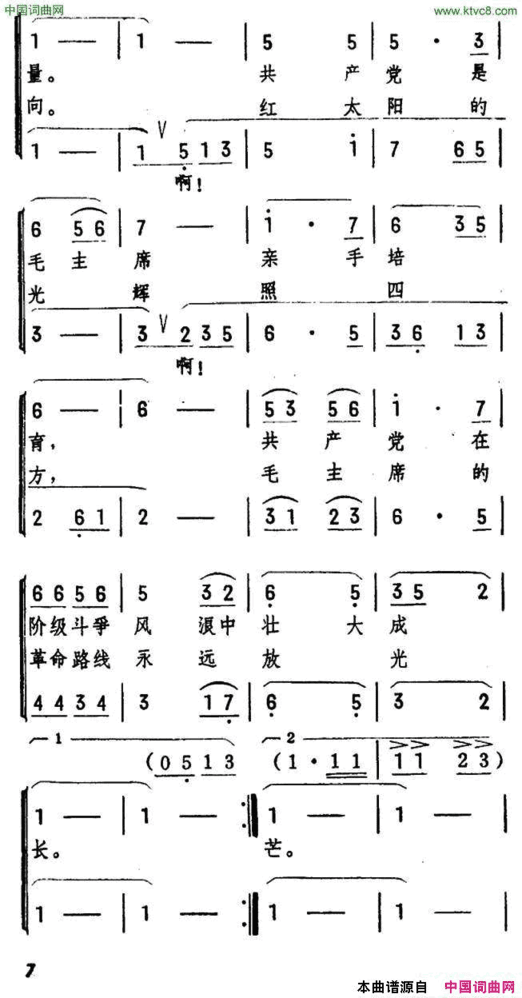 中国词曲网
www.ktvc8.com
1 — | 1 — | 5 5 | 5 · 3 |
量。 共 产 党 是
向。 红 太 阳 的
1 — | 1 V 5 1 3 | 5 i | 7 6 5 |
啊!
6 5 6 | 7 — | i · 7 | 6 3 5 |
毛 主 席 亲 手 培
光 辉 照 四
3 — | 3 V 2 3 5 | 6 · 5 | 3 6 1 3 |
啊!
6 — | 6 — | 5 3 5 6 | i · 7 |
育, 共 产 党 在
方, 毛 主 席 的
2 6 1 | 2 — | 3 1 2 3 | 6 · 5 |
6 6 5 6 | 5 3 2 | 6 5 | 3 5 2 |
阶 级 斗 争 风 浪 中 壮 大 成
革 命 路 线 永 远 放 光
4 4 3 4 | 3 1 7 | 6 5 | 3 2 |
1 2
(0 5 1 3 (1 · 1 1 | 1 1 2 3)
1 — | 1 — :| 1 — | 1 — |
长。 芒。
1 — | 1 — :| 1 — | 1 — |
7
本曲谱源自 中国词曲网